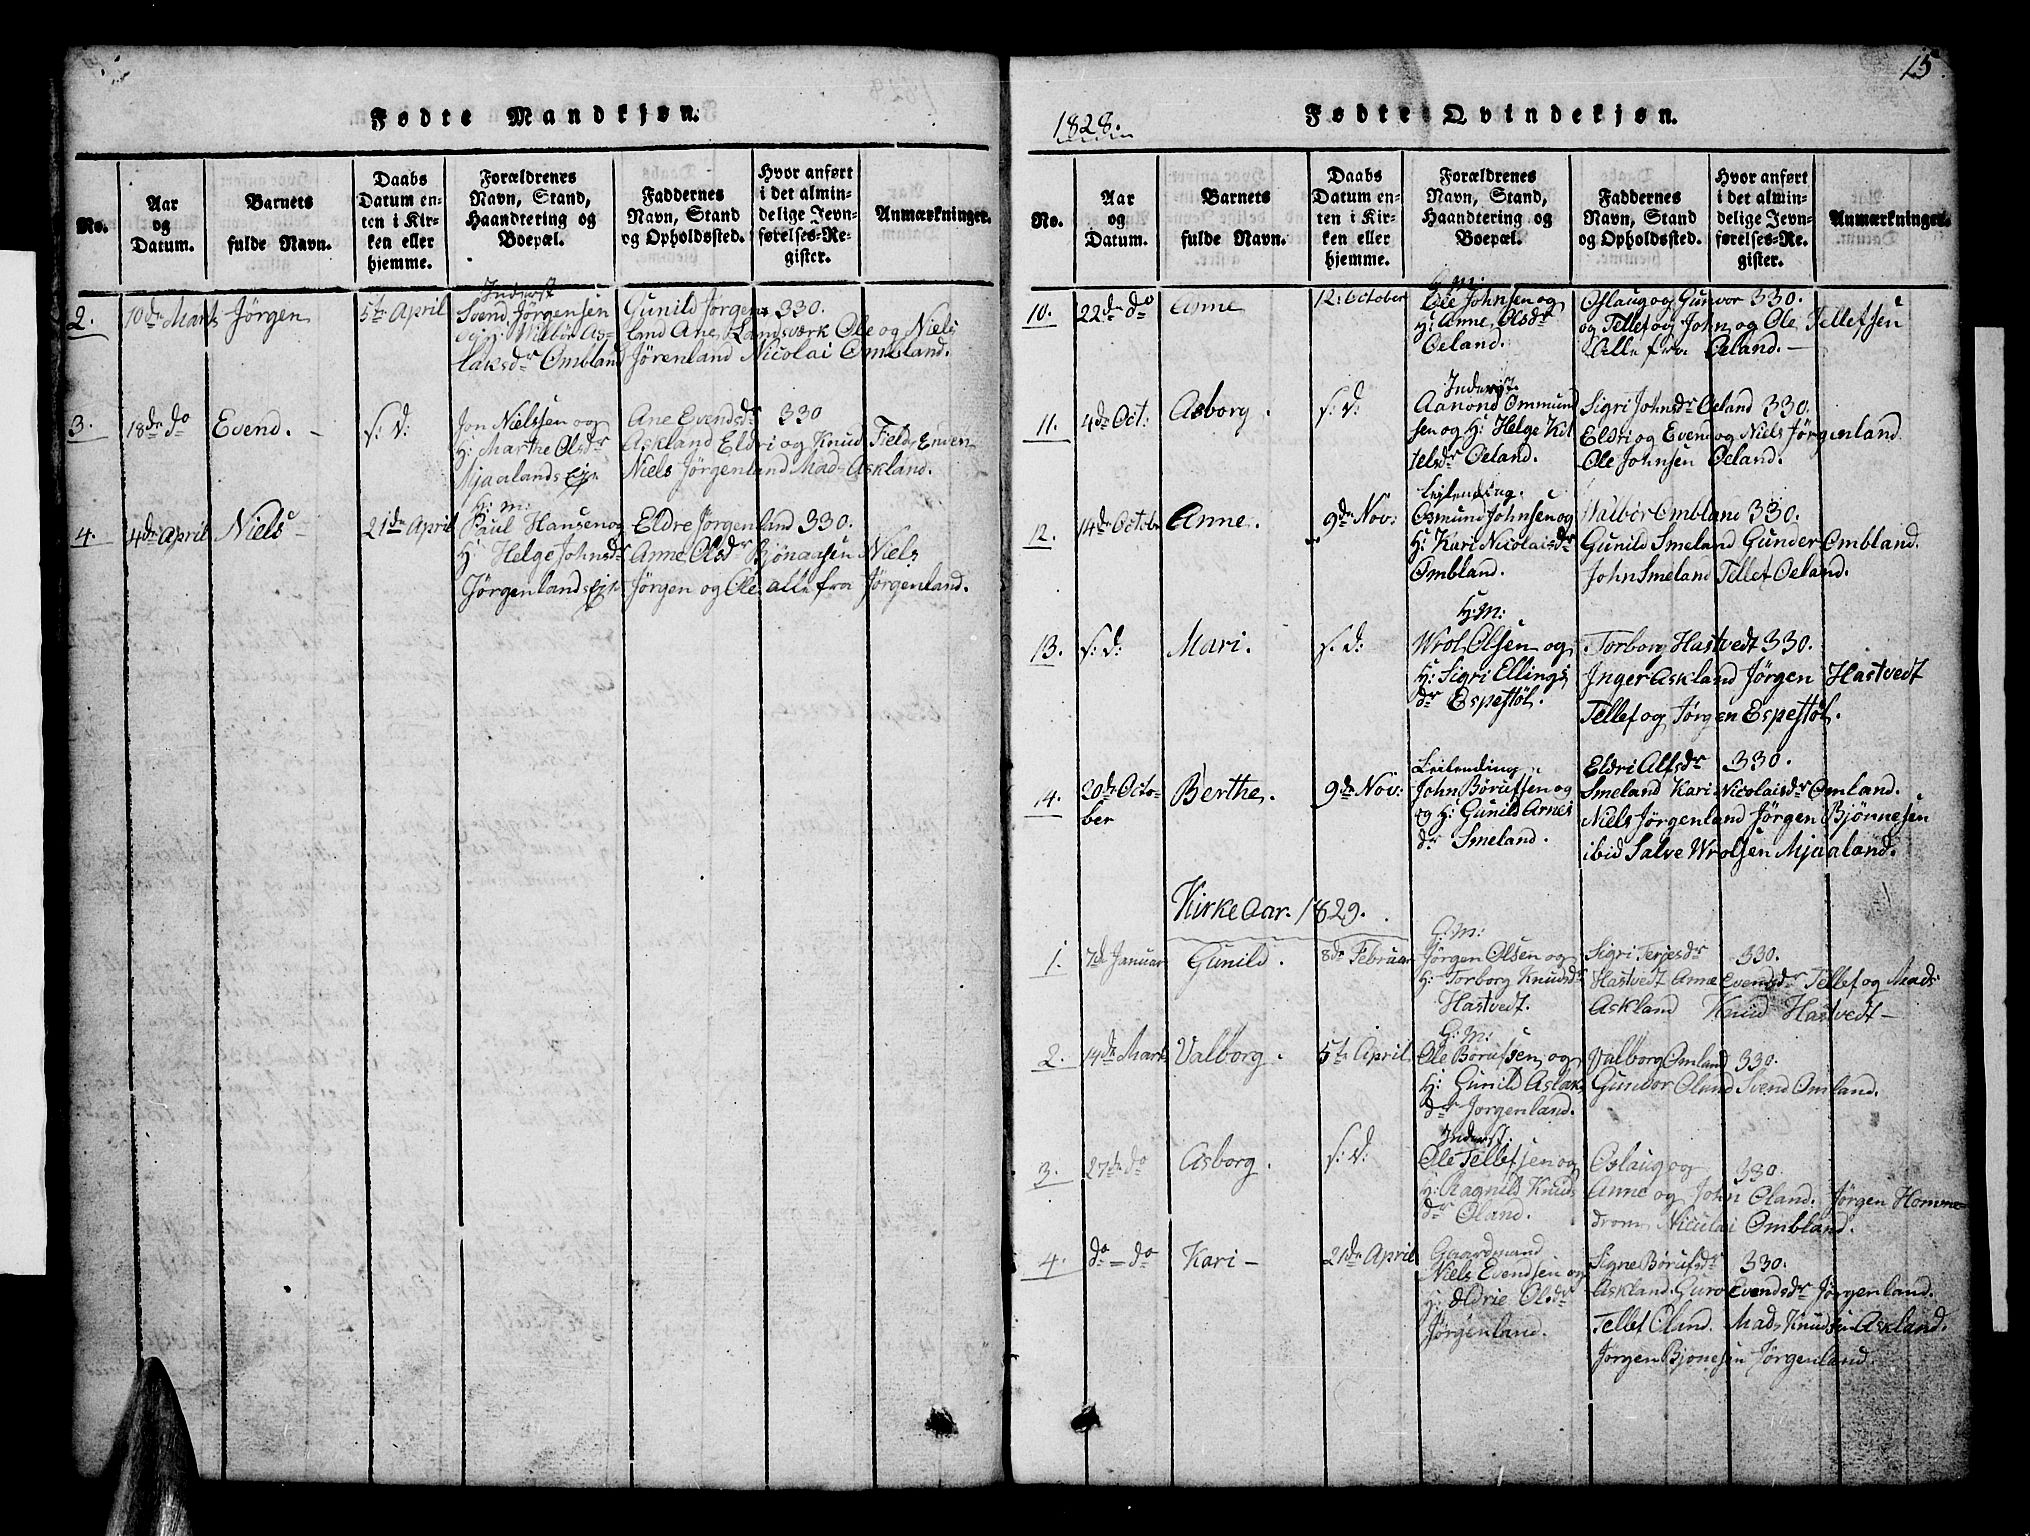 Fødte Mandkjøn.
No.
Aar
og
Datum.
Barnets
fulde Navn.
Daabs
Datum en-
ten i Kir-
ken eller
hjemme.
Forældrenes
Navn, Stand,
Haandtering og
Boepæl.
Faddernes
Navn, Stand
og Opholdssted.
Hvor anført
i det almin-
delige Jevn-
førelses-Re-
gister.
Anmærkninger.
2. 10de Marts Jörgen 5te April
Inderst
Svend Jörgensen
As-
laksdr Ombland
Gunild Jörgen- 330.
land Ane Landsværk Ole og Niels
Jörenland Nicolai Ombland.
3. 18de do Evend. - s: d:
Jon Nielssen og
H: Marthe Olsdr
Mjaalands Eje
Ane Evendsdr 330
Askland Eldri og Knud
Niels Jörgenland Mads Askland.
4. 4de April Niels - 21de April
H: M:
Paul Hansen og
H: Helge Johnsdr
Jörgenlands Eje
Eldre Jörgenland 330.
Anne Olsdr Bjönaasen Niels
Jörgen og Ole alle fra Jörgenland.
15.
1828.
Fødte Qvindekjøn.
No.
Aar
og
Datum.
Barnets
fulde Navn.
Daabs
Datum en-
ten i Kir-
ken eller
hjemme.
Forældrenes
Navn, Stand,
Haandtering og
Boepæl.
Faddernes
Navn, Stand
og Opholdssted.
Hvor anført
i det almin-
delige Jevn-
førelses-Re-
gister.
Anmærkninger.
10. 22de do Anne 12: October
G: M:
Ole Johnsen og
H: Anne Olsdr
Oeland.
Oslaug og Gunvor 330.
og Tellef og John og Ole Tellefsen
Alle fra Oeland. -
11. 4de Oct: Asborg. s: d:
Inderst.
Aanond Ommund
sen og H: Helge Kit
telsdr Oeland.
Sigri Johnsdr Oeland 330.
Eldri og Evend og Niels Jörgenland
Ole Johnsen Oeland.
12. 14de Octobr Anne. 9de Nov:
Leilending.
Osmund Johnsen og
H: Kari Nicolaisdr
Ombland.
Valbör Ombland 330.
Gunild Smeland Gunder Ombland.
John Smeland Tellef Oeland.
13. s: d: Mari. s: d:
H: M:
Wrol Olsen og
H: Sigri Ellings
dr Espestöl.
Torborg Hastvedt 330.
Inger Askland Jörgen Hastvedt
Tellef og Jörgen Espestöl.
14. 20de Octo-
ber
Berthe. 9de Nov:
Leilending
John Börufsen og
og H: Gunild Arnes
dr Smeland.
Eldri Alfsdr 330.
Smeland Kari Nicolaisdr Omland.
Niels Jörgenland Jörgen Bjönnesen
ibid Salve Wrolsen Mjaaland.
Kirke Aar. 1829.
1. 7de Januar Gunild. 8de Februar
G: M:
Jörgen Olsen og
H: Torborg Knudsdr
Hastvedt.
Sigri Terjesdr 330.
Hastvedt Anne Evendsdr Tellef og Mads
Askland Knud Hastvedt -
2. 14de Marts Valborg. 5te April
G: M:
Ole Börufsen og
H: Gunild Aslaks
dr Jorgenland.
Valborg Omland 330.
Gunvor Oland Svend Omland.
3. 27de do Asborg. s: d:
Inderst:
Ole Tellefsen og
H: Ragnild Knuds
dr Oland.
Oslaug og 330.
Anne og John Oland. Jörgen Homme
drom Nicolai Ombland.
4. do - do Kari - 21de April
Gaardmand
Niels Evendsen og
H: Eldrie Olsdr
Jörgenland.
Signe Börufsdr 330.
Askland. Guro Evendsdr Jörgenland.
Tellef Oland. Mads Knudsen Askland.
Jörgen Bjonesen Jörgenland.